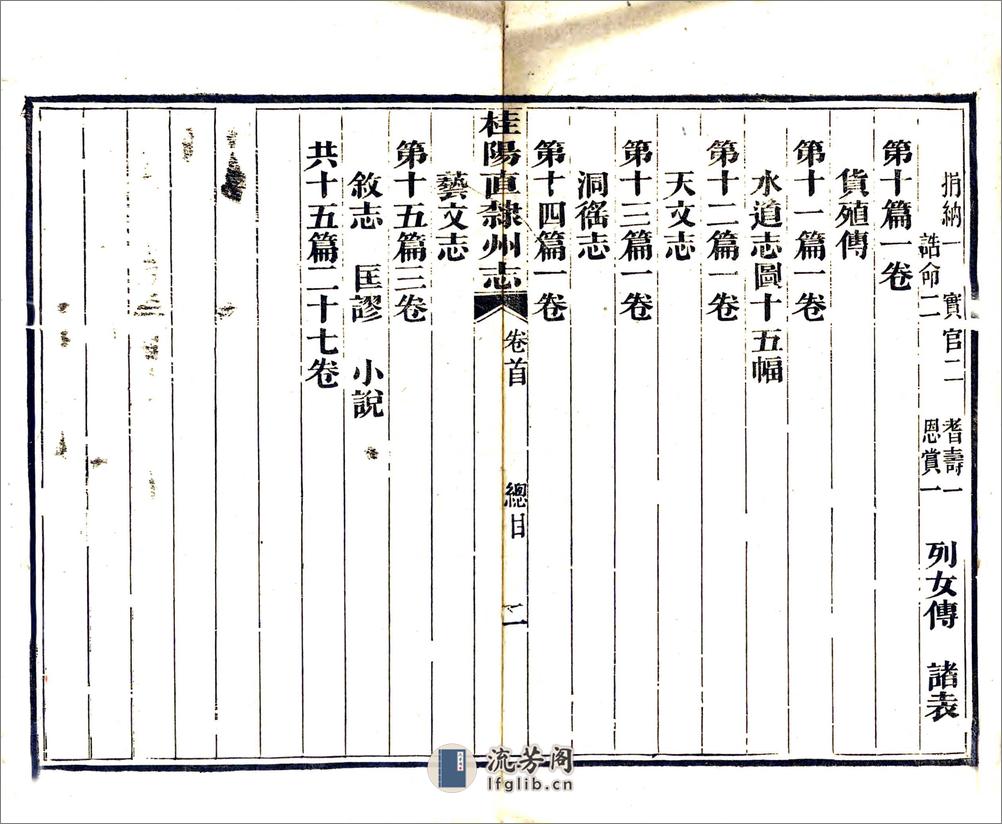 捐納一 實官二 耆壽一
誥命二 恩賞一 列女傳 諸表
第十篇一卷
貨殖傳
第十一篇一卷
水道志圖十五幅
第十二篇一卷
天文志
第十三篇一卷
洞徭志
第十四篇一卷
桂陽直隸州志 卷首 總目 二
藝文志
第十五篇三卷
敘志 匡謬 小說
共十五篇二十七卷
流芳阁
lfglib.cn